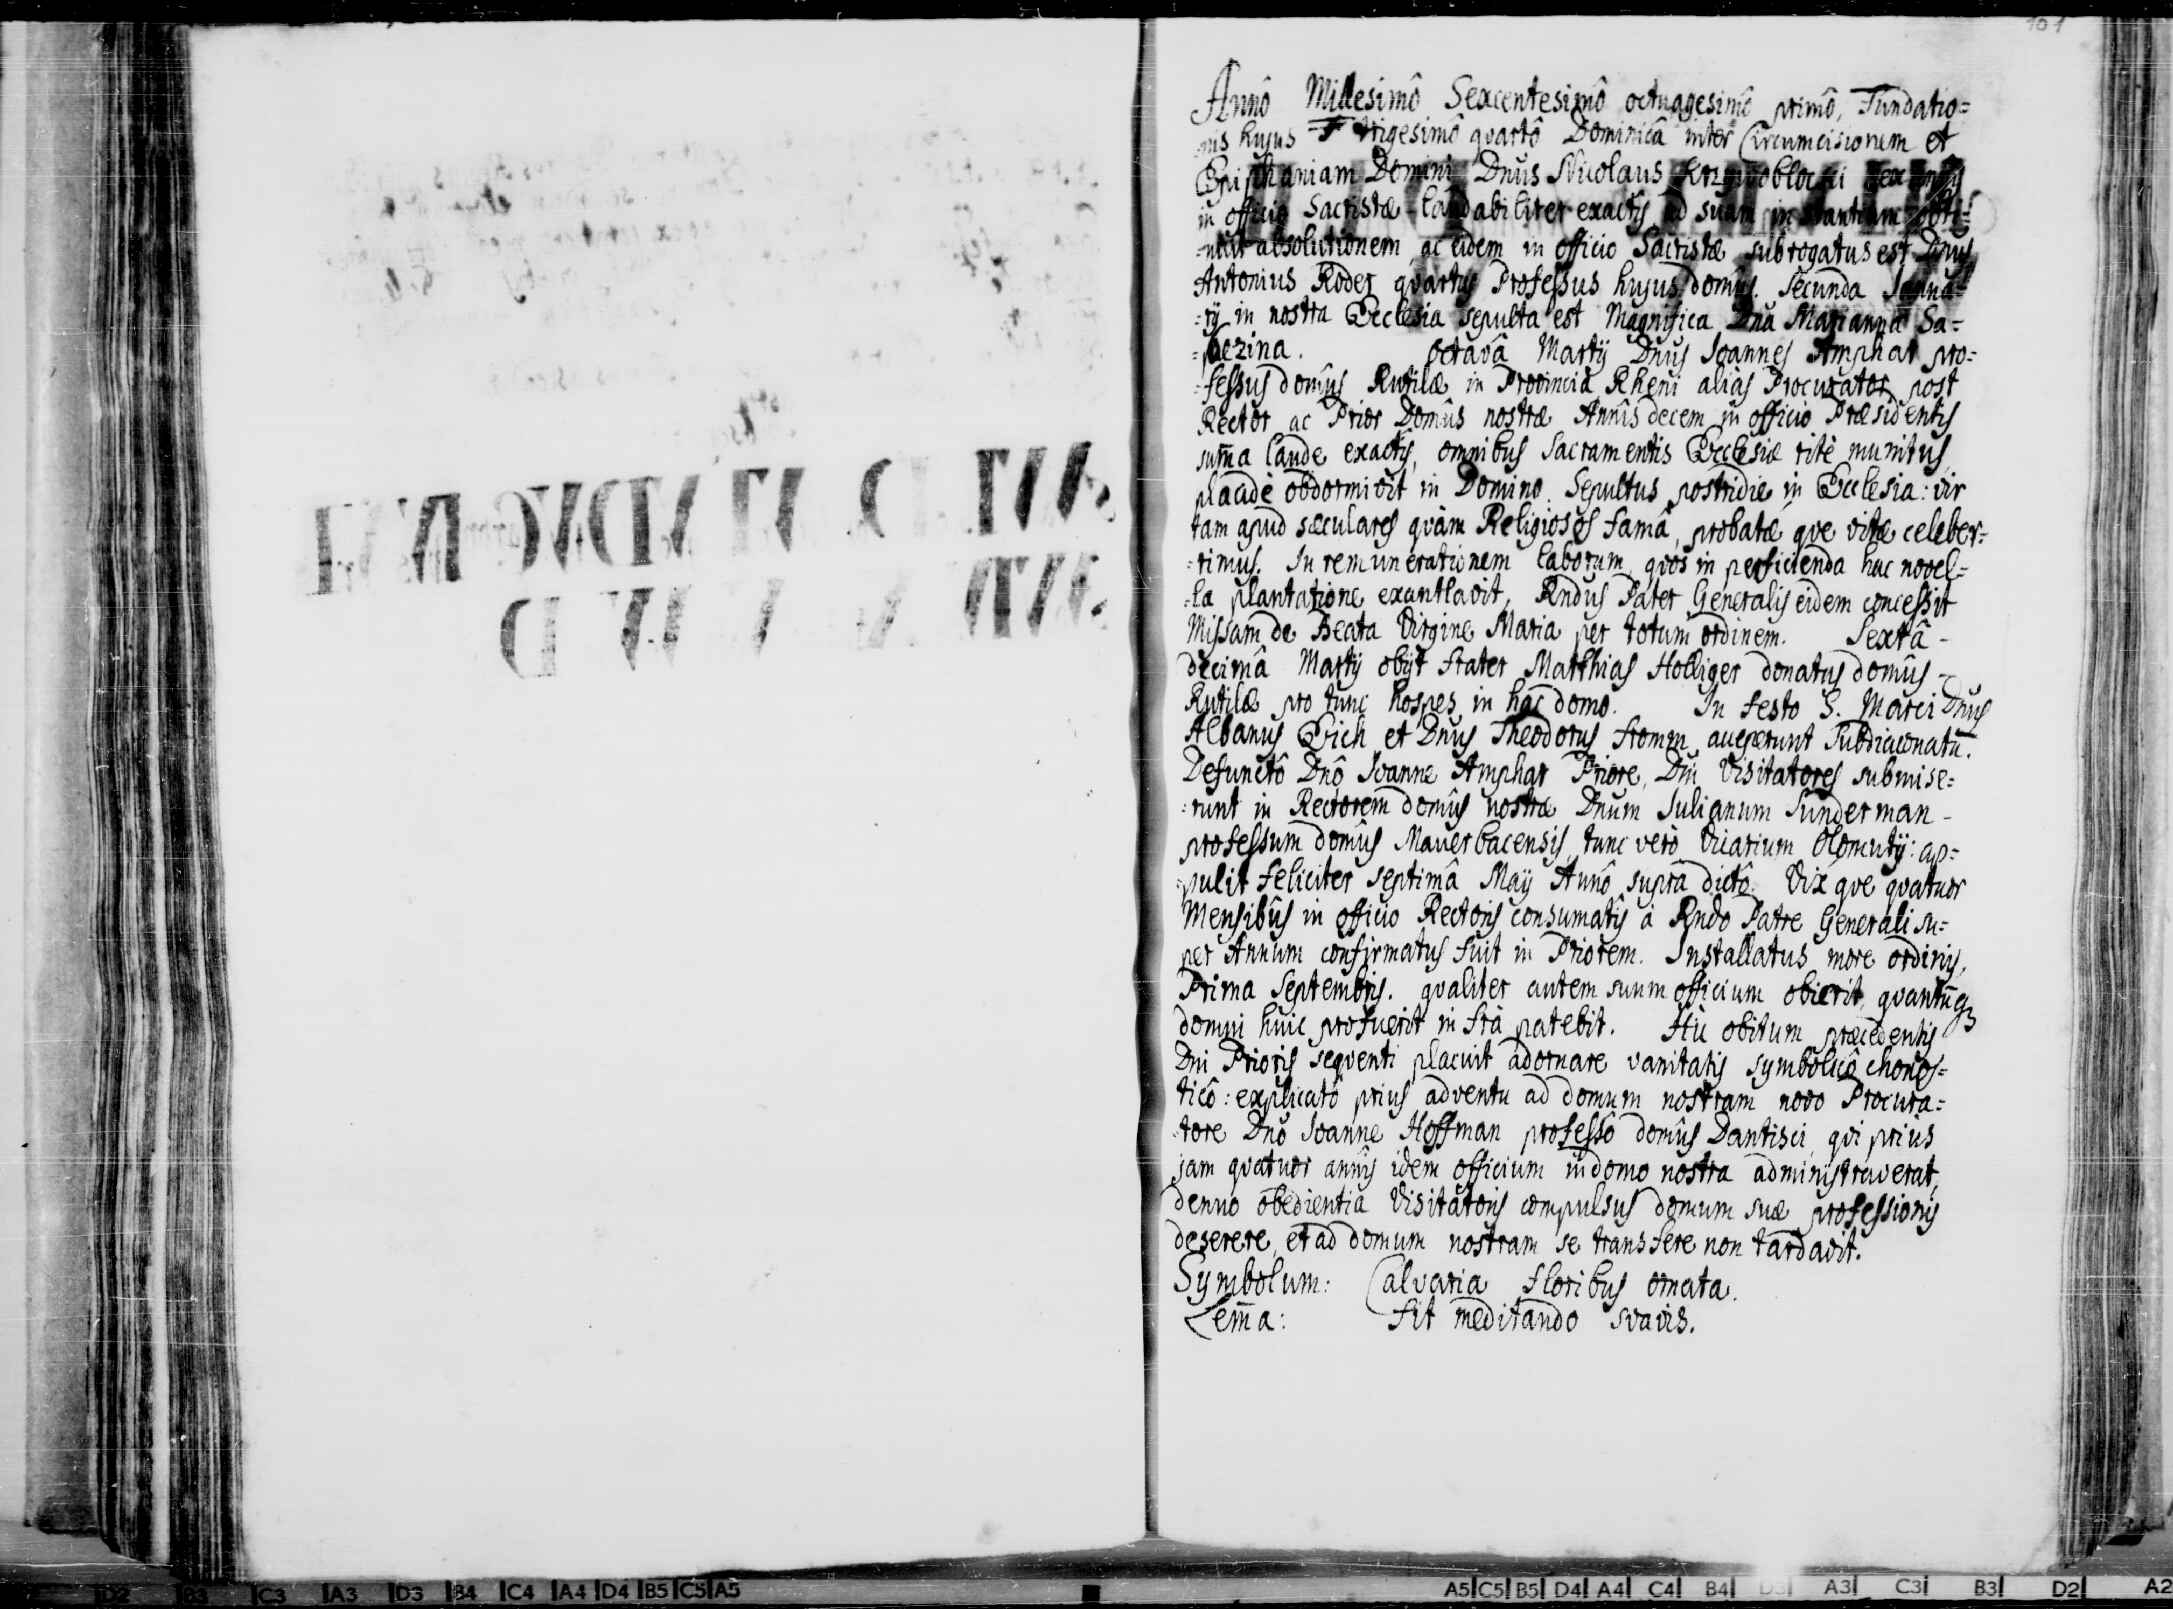 101
Annô Millesimô Sexcentesimô octuagesimô primô, Fundatio=
=nis hujus vigesimô quartô Dominicâ inter Circumcisionem et
Epiphaniam Domini Dnus Nicolaus
in officio Sacristæ laudabiliter exactis ad suam instantiam obti=
=nuit absolutionem, ac eidem in officio Sacristæ subrogatus est Dnus
Antonius Roder quartus Professus hujus domûs. Secunda Janua=
=rij in nostra Ecclesia sepulta est Magnifica Dna Marianna Sa=
=pezina. Octavâ Martij Dnus Joannes Amphar pro=
=fessus domûs Rutilæ in Provincia Rheni alias Procurator post
Rector ac Prior Domûs nostræ Annis decem in officio Præsidentis
suma laude exactis, omnibus Sacramentis Ecclesiæ ritè munitus,
placidè obdormivit in Domino. Sepultus postridie in Ecclesia: vir
tam apud sæculares quàm Religiosos famâ, probatæ que vitæ celeber=
=rimus. In remunerationem laborum, quos in perficienda hac novel=
=la plantatione exantlavit, Rndus Pater Generalis eidem concessit
Missam de Beata Virgine Maria per totum ordinem. Sextâ -
decimâ Martij obijt frater Matthias Holliger donatus domûs -
Rutilæ pro tunc hospes in hac domo. In festo S. Marci Dnus
Albanus Eich et Dnus Theodorus Fromm acceperunt Subdiaconatû.
Defunctô Dnô Joanne Amphar Priore, Dni Visitatores submise=
=runt in Rectorem domûs nostræ Dnum Julianum Sunderman -
professum domûs Mauerbacensis, tunc verò Vicarium Olomutij: ap=
=pulit feliciter septimâ Maij Annô supra dictô. Vix que quatuor
Mensibûs in officio Rectoris consumatîs à Rndo Patre Generali su=
per Annum confirmatus fuit in Priorem. Installatus more ordinis,
Prima Septembris. qualiter autem suum officium obierit, quantūq3
domui huic profuerit infrà patebit. Hic obitum præcedentis
Dni Prioris sequenti placuit adornare vanitatis symbolicô chonos=
ticô: explicatô prius adventu ad domum nostram novo Procura=
=tore Dnô Joanne Hoffman professô domûs Dantisci, qui prius
jam quatuor annis idem officium in domo nostra administraverat,
denuo obedientia Visitatoris compulsus domum suæ professionis
deserere, et ad domum nostram se transfere non tardavit.
Symbolum: Calvaria floribus ornata.
Lem̄a: Fit meditando svavis.
D2 B3 C3 A3 D3 B4 C4 A4 D4 B5 C5 A5
A5 C5 B5 D4 A4 C4 B4 D3 A3 C3 B3 D2 A2